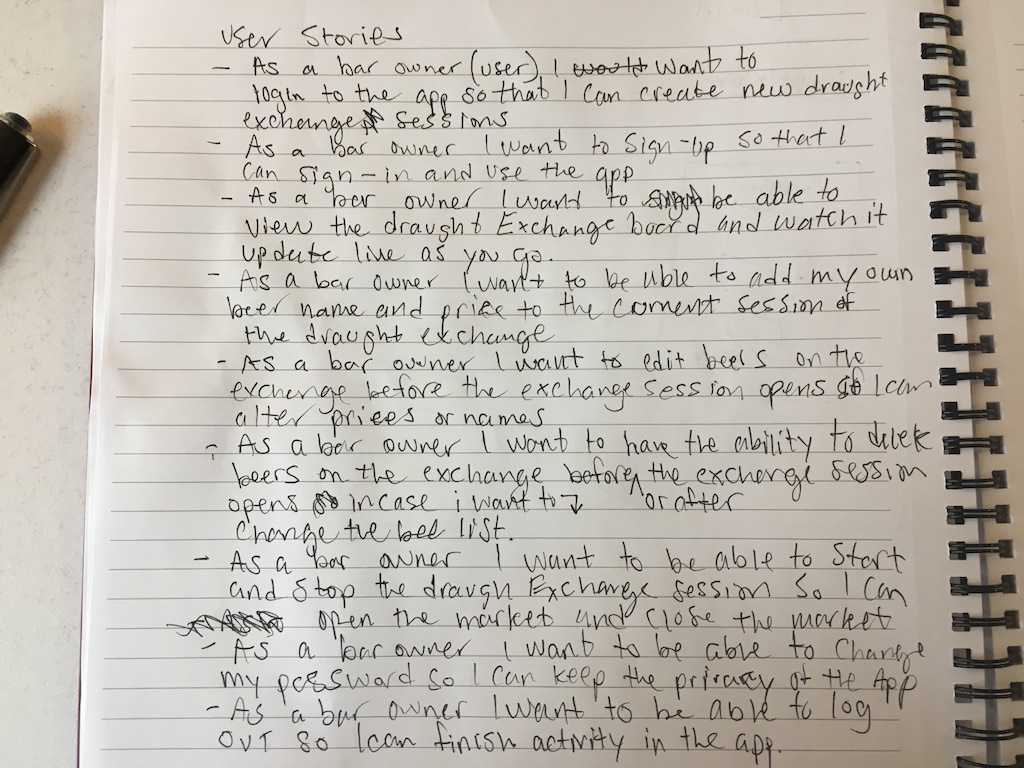 User Stories
- As a bar owner (user) I would want to
login to the app so that I can create new draught
exchange sessions
- As a bar owner I want to Sign-Up so that I
Can sign-in and use the app
- As a bar owner I want to be able to
view the draught Exchange board and watch it
update live as you go.
- As a bar owner I want to be able to add my own
beer name and price to the current session of
the draught exchange
- As a bar owner I want to edit beers on the
exchange before the exchange session opens so I can
alter prices or names
- As a bar owner I want to have the ability to delete
beers on the exchange before, the exchange session
opens incase i want to ↓ or after
Change the bee list.
- As a bar owner I want to be able to Start
and Stop the draugh Exchange session So I Can
open the market and Close the market
- As a bar owner I want to be able to Change
my password so I can keep the privacy of the App
- As a bar owner I want to be able to log
OUT so I can finish activity in the app.